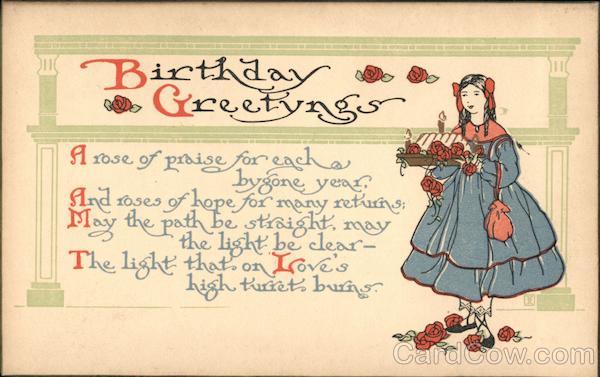 Birthday
Greetyngs
A rose of praise for each
bygone year,
And roses of hope for many returns;
May the path be straight, may
the light be clear—
The light that on Love's
high turret burns.
CardCow.com